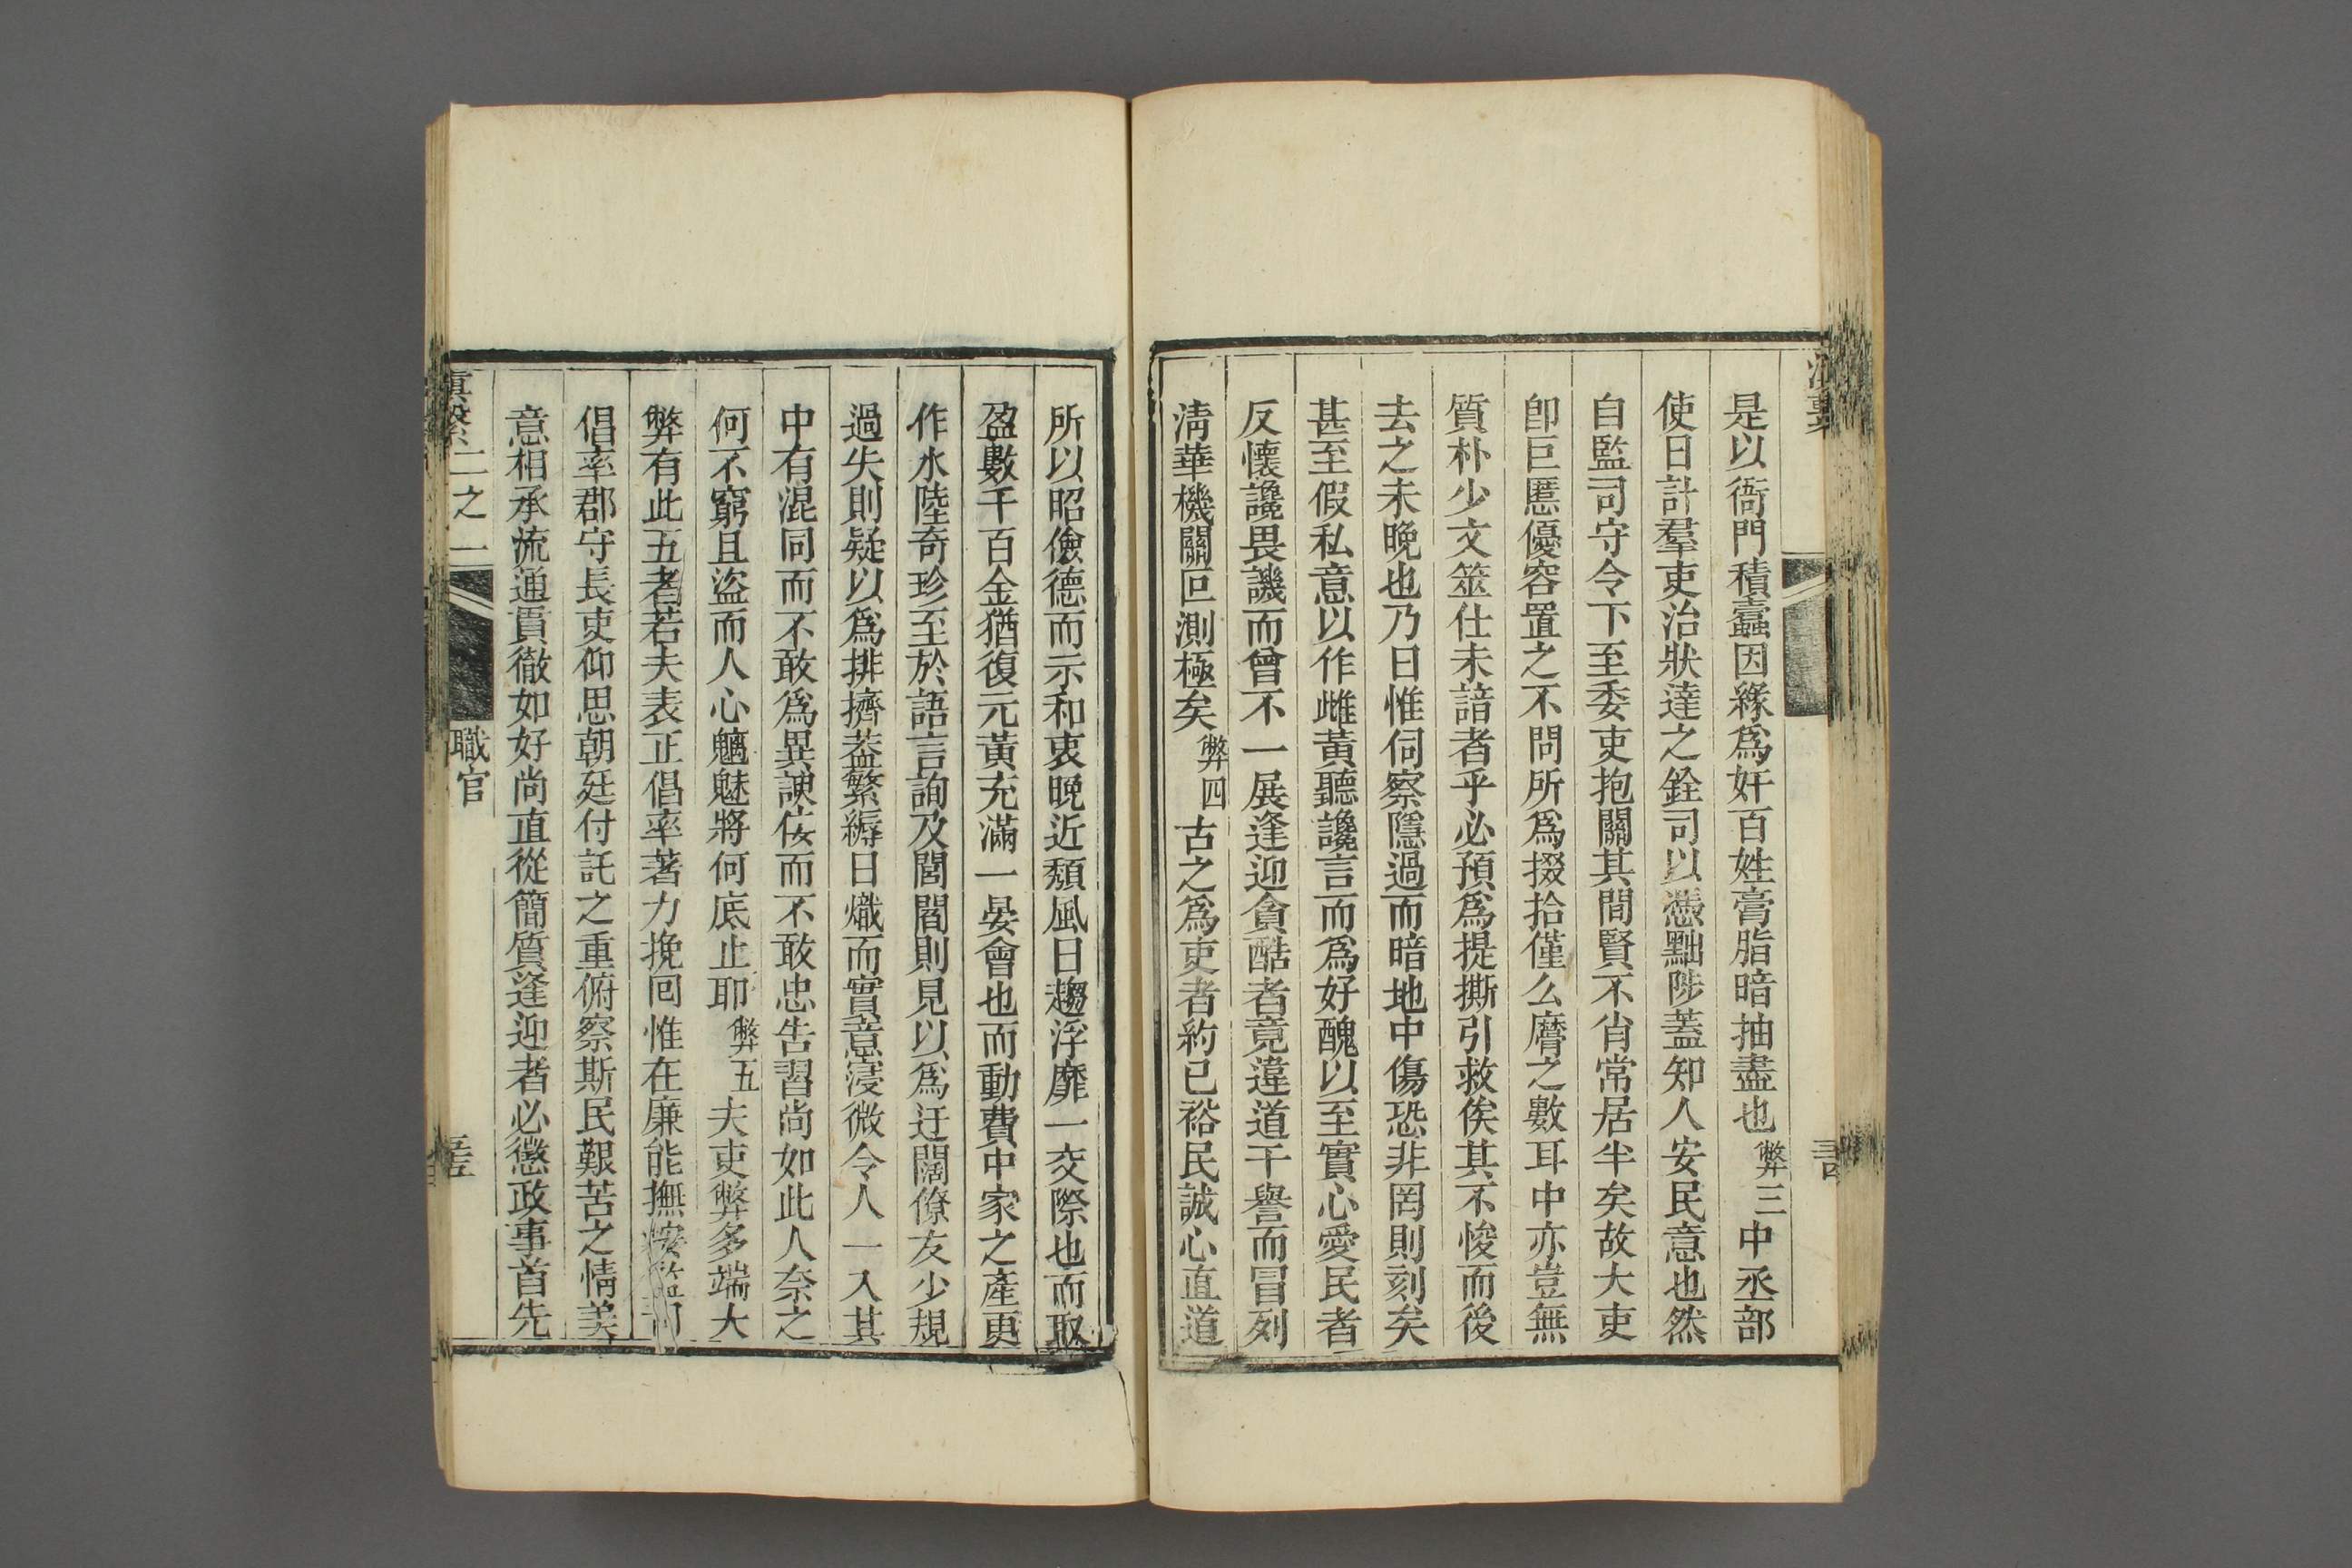 是以衙門積蠹因緣爲奸百姓膏脂暗抽盡也弊三中丞部
使日計羣吏治狀達之銓司以憑黜陟蓋知人安民意也然
自監司守令下至委吏抱關其間賢不肖常居半矣故大吏
卽巨慝優容置之不問所爲掇拾僅么麿之數耳中亦豈無
質朴少文筮仕未諳者乎必預爲提撕引救俟其不悛而後
去之未晚也乃日惟伺察隱過而暗地中傷恐非罔則刻矣
甚至假私意以作雌黃聽讒言而爲好醜以至實心愛民者
反懷讒畏譏而曾不一展逢迎貪酷者竟違道干譽而冒列
淸華機關叵測極矣弊四古之爲吏者約已裕民誠心直道
所以昭儉德而示和衷晚近頹風日趨浮靡一交際也而取
盈數千百金猶復元黃充滿一晏會也而動費中家之產更
作水陸奇珍至於語言詢及閭閻則見以爲迂闊僚友少規
過失則疑以爲排擠葢繁縟日熾而實意寖微令人一入其
中有混同而不敢爲異諛佞而不敢忠告習尚如此人奈之
何不窮且盜而人心魑魅將何底止耶弊五夫吏弊多端大
弊有此五者若夫表正倡率著力挽回惟在廉能撫按監司
倡率郡守長吏仰思朝廷付託之重俯察斯民艱苦之情美
意相承流通貫徹如好尚直從簡質逢迎者必懲政事首先
滇繫二之一 職官